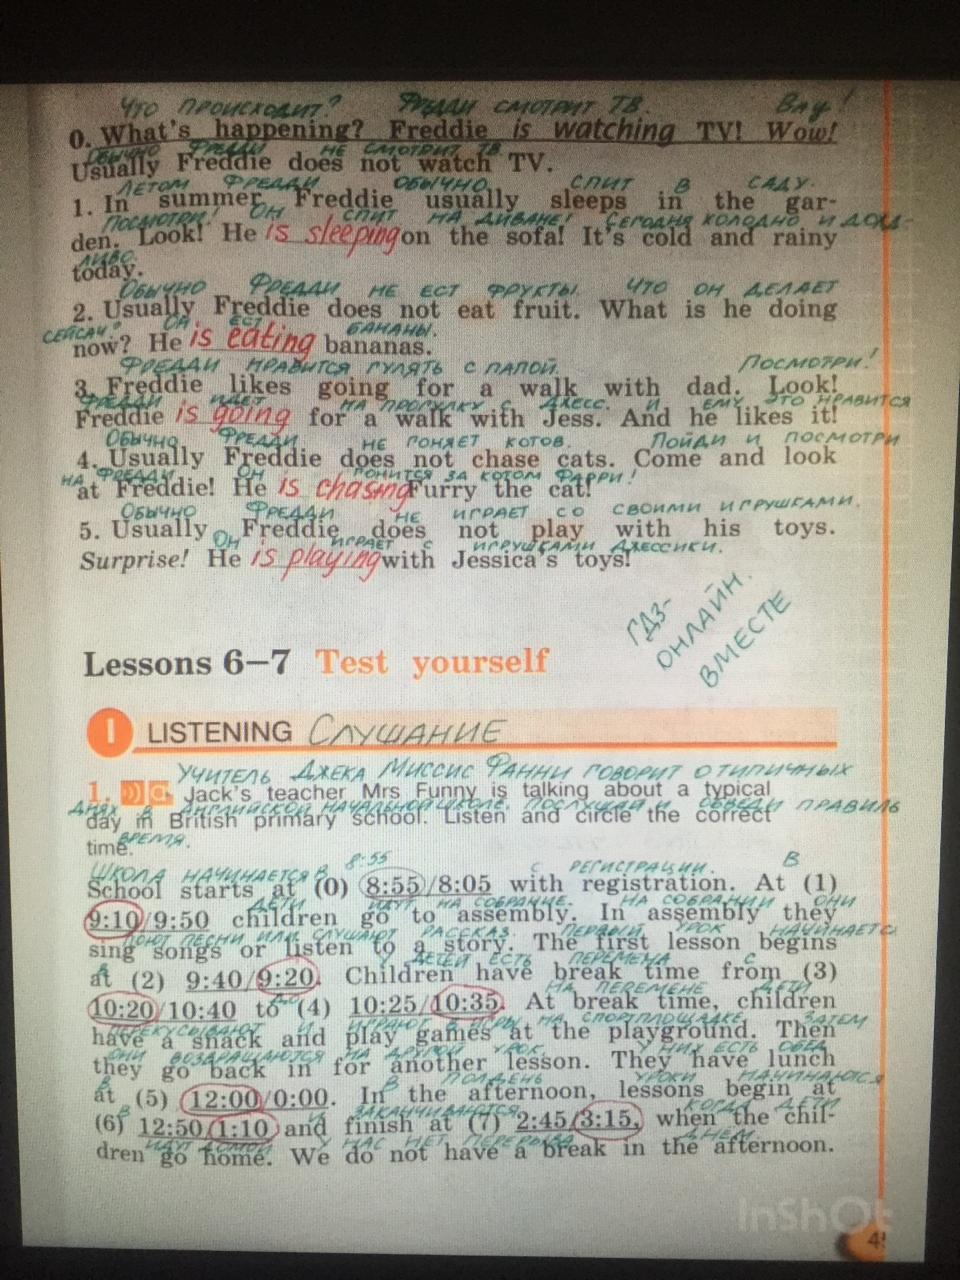 Что происходит? Фредди смотрит ТВ. Вау!
0. What's happening? Freddie is watching TV! Wow!
Обычно Фредди не смотрит ТВ
Usually Freddie does not watch TV.
Летом Фредди обычно спит в саду.
1. In summer Freddie usually sleeps in the gar-
Посмотри! Он спит на диване! Сегодня холодно и дожд-
den. Look! He is sleeping on the sofa! It's cold and rainy
ливо.
today.
Обычно Фредди не ест фрукты. Что он делает
2. Usually Freddie does not eat fruit. What is he doing
сейсач? Он ест бананы.
now? He is eating bananas.
Фредди нравится гулять с папой. Посмотри!
3. Freddie likes going for a walk with dad. Look!
Фредди идет на прогулку с Джесс. И ему это нравится
Freddie is going for a walk with Jess. And he likes it!
Обычно Фредди не гоняет котов. Пойди и посмотри
4. Usually Freddie does not chase cats. Come and look
на Фредди! Он гонится за котом Фарри!
at Freddie! He is chasing Furry the cat!
Обычно Фредди не играет со своими игрушками.
5. Usually Freddie does not play with his toys.
Он играет с игрушками Джессики.
Surprise! He is playing with Jessica's toys!
ГДЗ-
ОНЛАЙН.
ВМЕСТЕ
Lessons 6–7 Test yourself
I LISTENING Слушание
Учитель Джека Миссис Фанни говорит о типичных
1. Jack's teacher Mrs Funny is talking about a typical
днях в английской начальной школе. Послушай и обведи правиль
day in British primary school. Listen and circle the correct
время.
time.
8:55
Школа начинается в с регистрации. В
School starts at (0) 8:55/8:05 with registration. At (1)
дети идут на собрание. На собрании они
9:10/9:50 children go to assembly. In assembly they
поют песни или слушают рассказ. Первый урок начинаетс
sing songs or listen to a story. The first lesson begins
в У детей есть перемена с
at (2) 9:40/9:20. Children have break time from (3)
до На перемене дети
10:20/10:40 to (4) 10:25/10:35. At break time, children
перекусывают и играют в игры на спортплощадке. Затем
have a snack and play games at the playground. Then
они возвращаются на другой урок. У них есть обед
they go back in for another lesson. They have lunch
в В полдень уроки начинаются
at (5) 12:00/0:00. In the afternoon, lessons begin at
в и заканчиваются когда дети
(6) 12:50/1:10 and finish at (7) 2:45/3:15, when the chil-
идут домой. У нас нет перерыва днём.
dren go home. We do not have a break in the afternoon.
InShOt